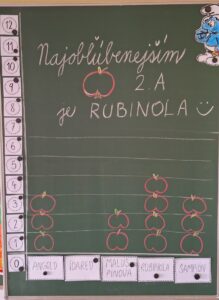 Najobľúbenejším
2.A
je RUBINOLA
12
11
10
9
8
7
6
5
4
3
2
1
0
ANGOLD
IDARED
MALUS PINOVA
RUBINOLA
ŠAMPION